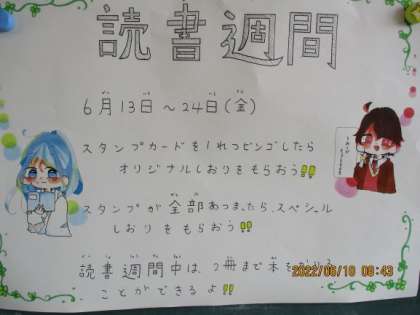 読書週間
6月13日～24日(金)
スタンプカードを1れつビンゴしたら
オリジナルしおりをもらおう!!
スタンプが全部あつまったら、スペシャル
しおりをもらおう!!
読書週間中は、2冊まで本を
ことができるよ!!
2022/06/10 08:43